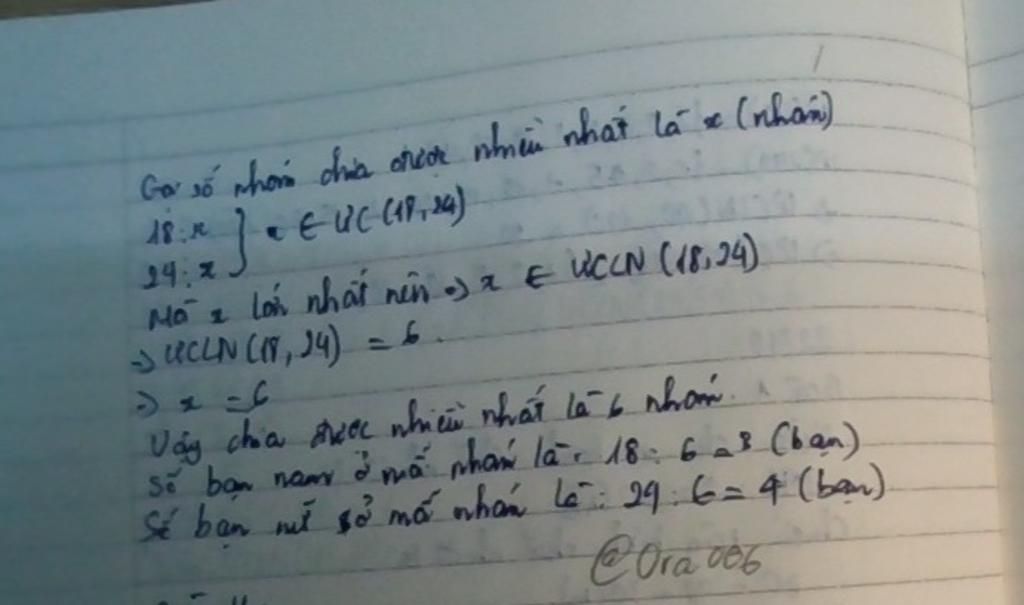 Gọi số nhóm chia được nhiều nhất là x (nhóm)
18 : x } x ∈ ƯC (18, 24)
24 : x
Mà x lớn nhất nên => x ∈ ƯCLN (18, 24)
=> ƯCLN (18, 24) = 6.
=> x = 6
Vậy chia được nhiều nhất là 6 nhóm.
Số bạn nam ở mỗi nhóm là: 18 : 6 = 3 (bạn)
Số bạn nữ ở mỗi nhóm là: 24 : 6 = 4 (bạn)
@Ora006